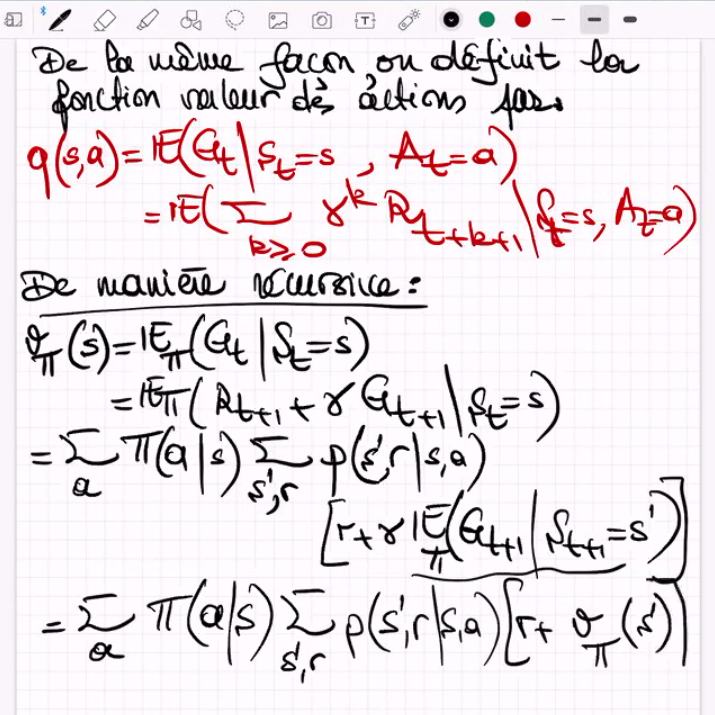 De la même façon on définit la
fonction valeur des actions par.
q(s,a) = IE(G_t | S_t = s, A_t = a)
= IE(∑_{k≥0} γ^k R_{t+k+1} | S_t = s, A_t = a)
De manière récursive :
v_π(s) = IE_π(G_t | S_t = s)
= IE_π(R_{t+1} + γ G_{t+1} | S_t = s)
= ∑_a π(a|s) ∑_{s',r} p(s',r | s,a)
[r + γ IE_π(G_{t+1} | S_{t+1} = s')]
= ∑_a π(a|s) ∑_{s',r} p(s',r | s,a) [r + v_π(s')]